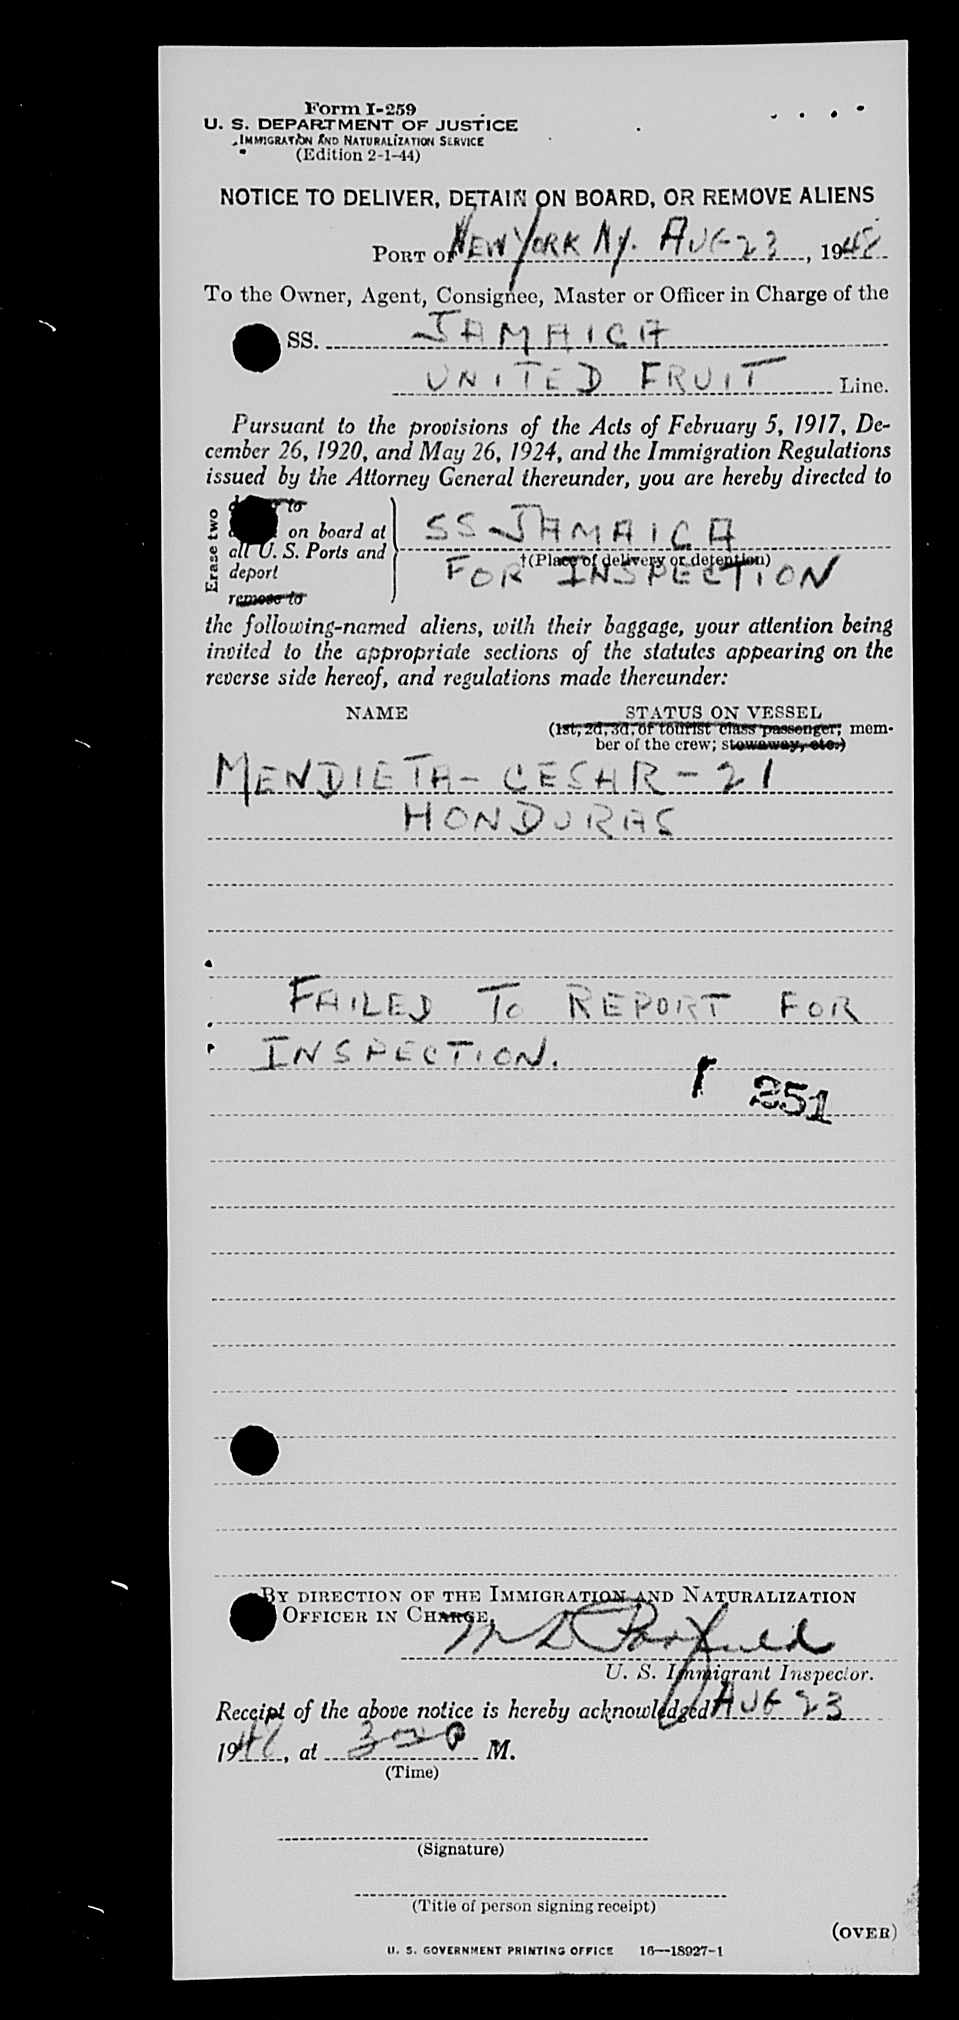 Form I-259
U. S. DEPARTMENT OF JUSTICE
IMMIGRATION AND NATURALIZATION SERVICE
(Edition 2-1-44)
NOTICE TO DELIVER, DETAIN ON BOARD, OR REMOVE ALIENS
PORT OF NEW YORK NY. AUG 23, 1948
To the Owner, Agent, Consignee, Master or Officer in Charge of the
SS. JAMAICA
UNITED FRUIT Line.
Pursuant to the provisions of the Acts of February 5, 1917, De-
cember 26, 1920, and May 26, 1924, and the Immigration Regulations
issued by the Attorney General thereunder, you are hereby directed to
Erase two
to
on board at
all U. S. Ports and
deport
remove to
SS JAMAICA
†(Place of delivery or detention)
FOR INSPECTION
the following-named aliens, with their baggage, your attention being
invited to the appropriate sections of the statutes appearing on the
reverse side hereof, and regulations made thereunder:
NAME STATUS ON VESSEL
(1st, 2d, 3d, or tourist class passenger; mem-
ber of the crew; stowaway, etc.)
MENDIETA - CESAR - 21
HONDURAS
FAILED TO REPORT FOR
INSPECTION.
251
BY DIRECTION OF THE IMMIGRATION AND NATURALIZATION
OFFICER IN CHARGE,
U. S. Immigrant Inspector.
Receipt of the above notice is hereby acknowledged AUG 23
1948, at 300 P M.
(Time)
(Signature)
(Title of person signing receipt)
(OVER)
U. S. GOVERNMENT PRINTING OFFICE 16—18927-1